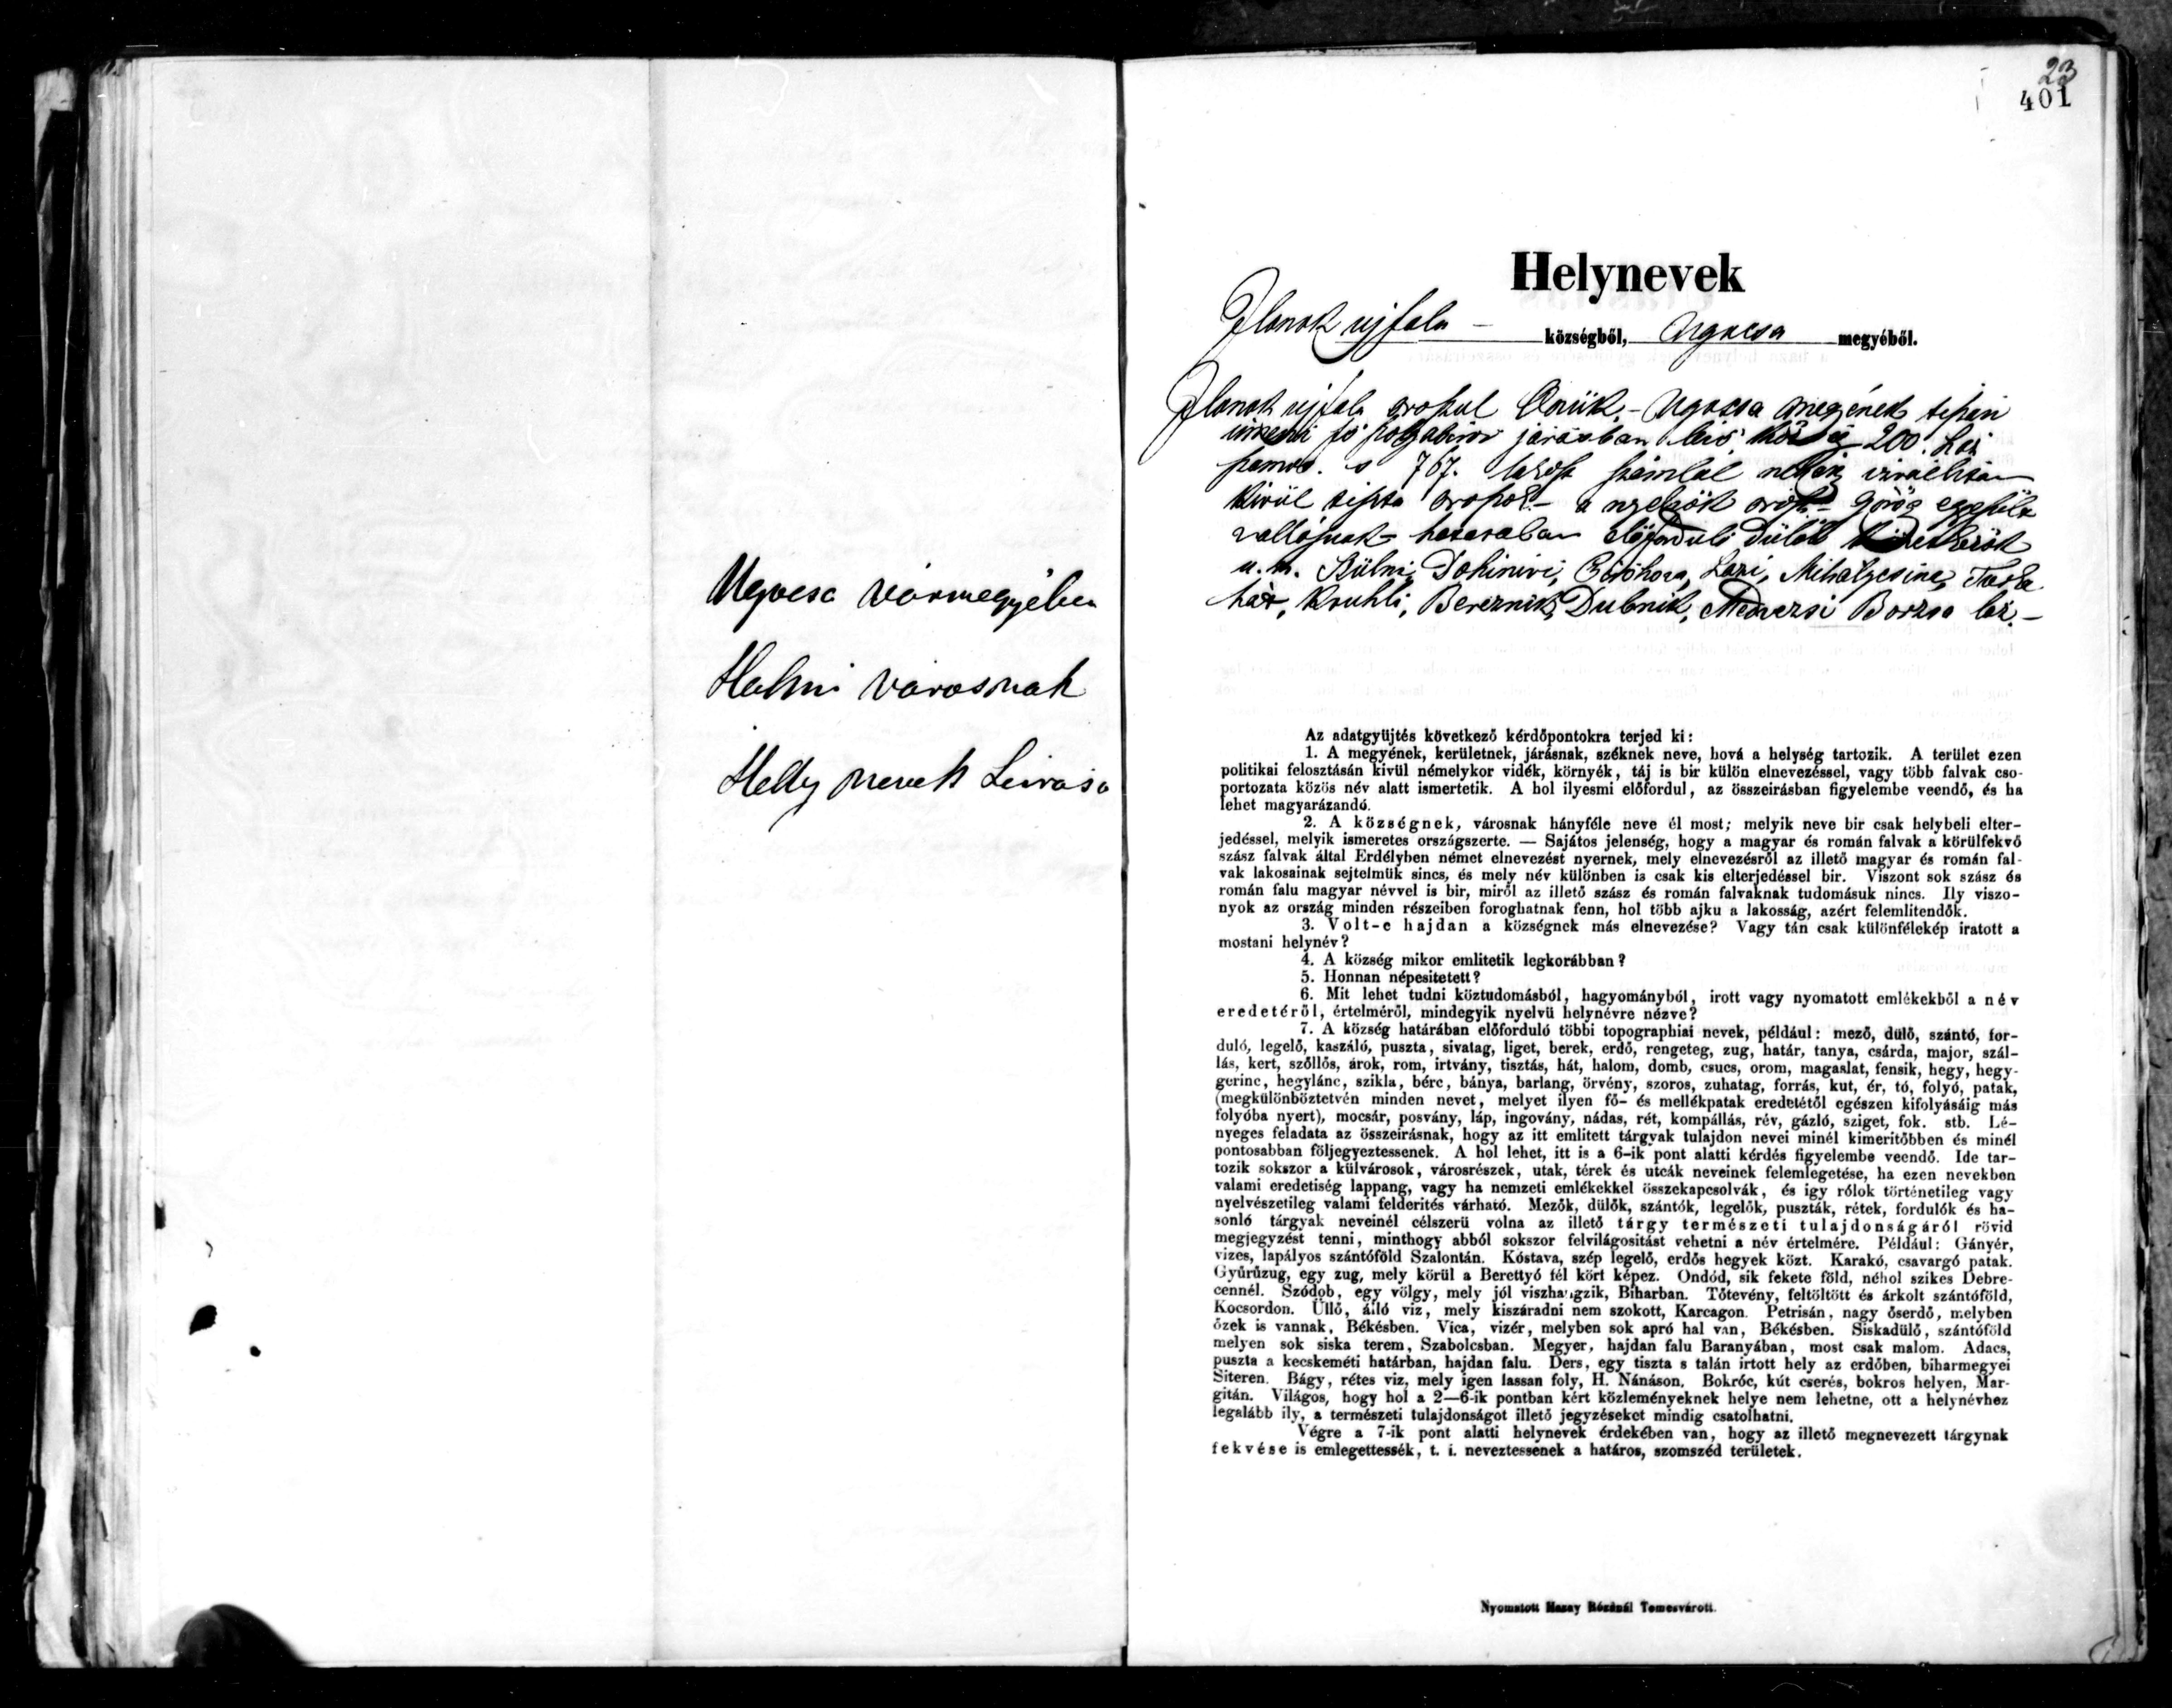 Ugocsa vármegyében
Halmi városnak
Helly nevek Leirása
23
401
Helynevek
Ilonok ujfalu – községből, Ugocsa megyéből.
Ilonok ujfalu oroszul Onük – Ugocsa megyének tiszán
inneni fő szolgabirói járásban levő község 200. ház
számos. s 767. lakost számlál néhány izraelitán
kivül tiszta oroszok – görög egyesült
vallásuak – határában előforduló Dülők
u. m. Dohinivi, Lazi, Mihalycsine,
hát, Kruhli, Bereznik, Dubnik, Medvezsi Borzso láz. –
Az adatgyüjtés következő kérdőpontokra terjed ki:
1. A megyének, kerületnek, járásnak, széknek neve, hová a helység tartozik. A terület ezen
politikai felosztásán kivül némelykor vidék, környék, táj is bir külön elnevezéssel, vagy több falvak cso-
portozata közös név alatt ismertetik. A hol ilyesmi előfordul, az összeirásban figyelembe veendő, és ha
lehet magyarázandó.
2. A községnek, városnak hányféle neve él most; melyik neve bir csak helybeli elter-
jedéssel, melyik ismeretes országszerte. — Sajátos jelenség, hogy a magyar és román falvak a körülfekvő
szász falvak által Erdélyben német elnevezést nyernek, mely elnevezésről az illető magyar és román fal-
vak lakosainak sejtelmük sincs, és mely név különben is csak kis elterjedéssel bir. Viszont sok szász és
román falu magyar névvel is bir, miről az illető szász és román falvaknak tudomásuk nincs. Ily viszo-
nyok az ország minden részeiben foroghatnak fenn, hol több ajku a lakosság, azért felemlitendők.
3. Volt-e hajdan a községnek más elnevezése? Vagy tán csak különfélekép iratott a
mostani helynév?
4. A község mikor emlitetik legkorábban?
5. Honnan népesitetett?
6. Mit lehet tudni köztudomásból, hagyományból, irott vagy nyomatott emlékekből a név
eredetéről, értelméről, mindegyik nyelvü helynévre nézve?
7. A község határában előforduló többi topographiai nevek, például: mező, dülő, szántó, for-
duló, legelő, kaszáló, puszta, sivatag, liget, berek, erdő, rengeteg, zug, határ, tanya, csárda, major, szál-
lás, kert, szőllős, árok, rom, irtvány, tisztás, hát, halom, domb, csucs, orom, magaslat, fensik, hegy, hegy-
gerinc, hegylánc, szikla, bérc, bánya, barlang, örvény, szoros, zuhatag, forrás, kut, ér, tó, folyó, patak,
(megkülönböztetvén minden nevet, melyet ilyen fő- és mellékpatak eredetétől egészen kifolyásáig más
folyóba nyert), mocsár, posvány, láp, ingovány, nádas, rét, kompállás, rév, gázló, sziget, fok. stb. Lé-
nyeges feladata az összeirásnak, hogy az itt emlitett tárgyak tulajdon nevei minél kimeritőbben és minél
pontosabban följegyeztessenek. A hol lehet, itt is a 6-ik pont alatti kérdés figyelembe veendő. Ide tar-
tozik sokszor a külvárosok, városrészek, utak, térek és utcák neveinek felemlegetése, ha ezen nevekben
valami eredetiség lappang, vagy ha nemzeti emlékekkel összekapcsolvák, és igy rólok történetileg vagy
nyelvészetileg valami felderités várható. Mezők, dülők, szántók, legelők, puszták, rétek, fordulók és ha-
sonló tárgyak neveinél célszerü volna az illető tárgy természeti tulajdonságáról rövid
megjegyzést tenni, minthogy abból sokszor felvilágositást vehetni a név értelmére. Például: Gányér,
vizes, lapályos szántóföld Szalontán. Kóstava, szép legelő, erdős hegyek közt. Karakó, csavargó patak.
Gyűrűzug, egy zug, mely körül a Berettyó fél kört képez. Ondód, sik fekete föld, néhol szikes Debre-
cennél. Szódob, egy völgy, mely jól viszhangzik, Biharban. Tőtevény, feltöltött és árkolt szántóföld,
Kocsordon. Üllő, álló viz, mely kiszáradni nem szokott, Karcagon. Petrisán, nagy őserdő, melyben
őzek is vannak, Békésben. Vica, vizér, melyben sok apró hal van, Békésben. Siskadülő, szántóföld
melyen sok siska terem, Szabolcsban. Megyer, hajdan falu Baranyában, most csak malom. Adacs,
puszta a kecskeméti határban, hajdan falu. Ders, egy tiszta s talán irtott hely az erdőben, biharmegyei
Siteren. Bágy, rétes viz, mely igen lassan foly, H. Nánáson. Bokróc, kút cserés, bokros helyen, Mar-
gitán. Világos, hogy hol a 2—6-ik pontban kért közleményeknek helye nem lehetne, ott a helynévhez
legalább ily, a természeti tulajdonságot illető jegyzéseket mindig csatolhatni.
Végre a 7-ik pont alatti helynevek érdekében van, hogy az illető megnevezett tárgynak
fekvése is emlegettessék, t. i. neveztessenek a határos, szomszéd területek.
Nyomatott Hazay Rózánál Temesvárott.